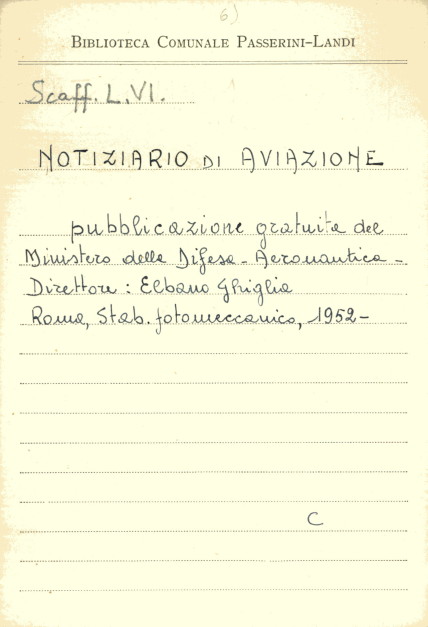 6)
BIBLIOTECA COMUNALE PASSERINI-LANDI
Scaff. L. VI.
NOTIZIARIO DI AVIAZIONE
pubblicazione gratuita del
Ministero della Difesa - Aeronautica -
Direttore : Elbano Ghiglia
Roma, Stab. fotomeccanico, 1952-
C